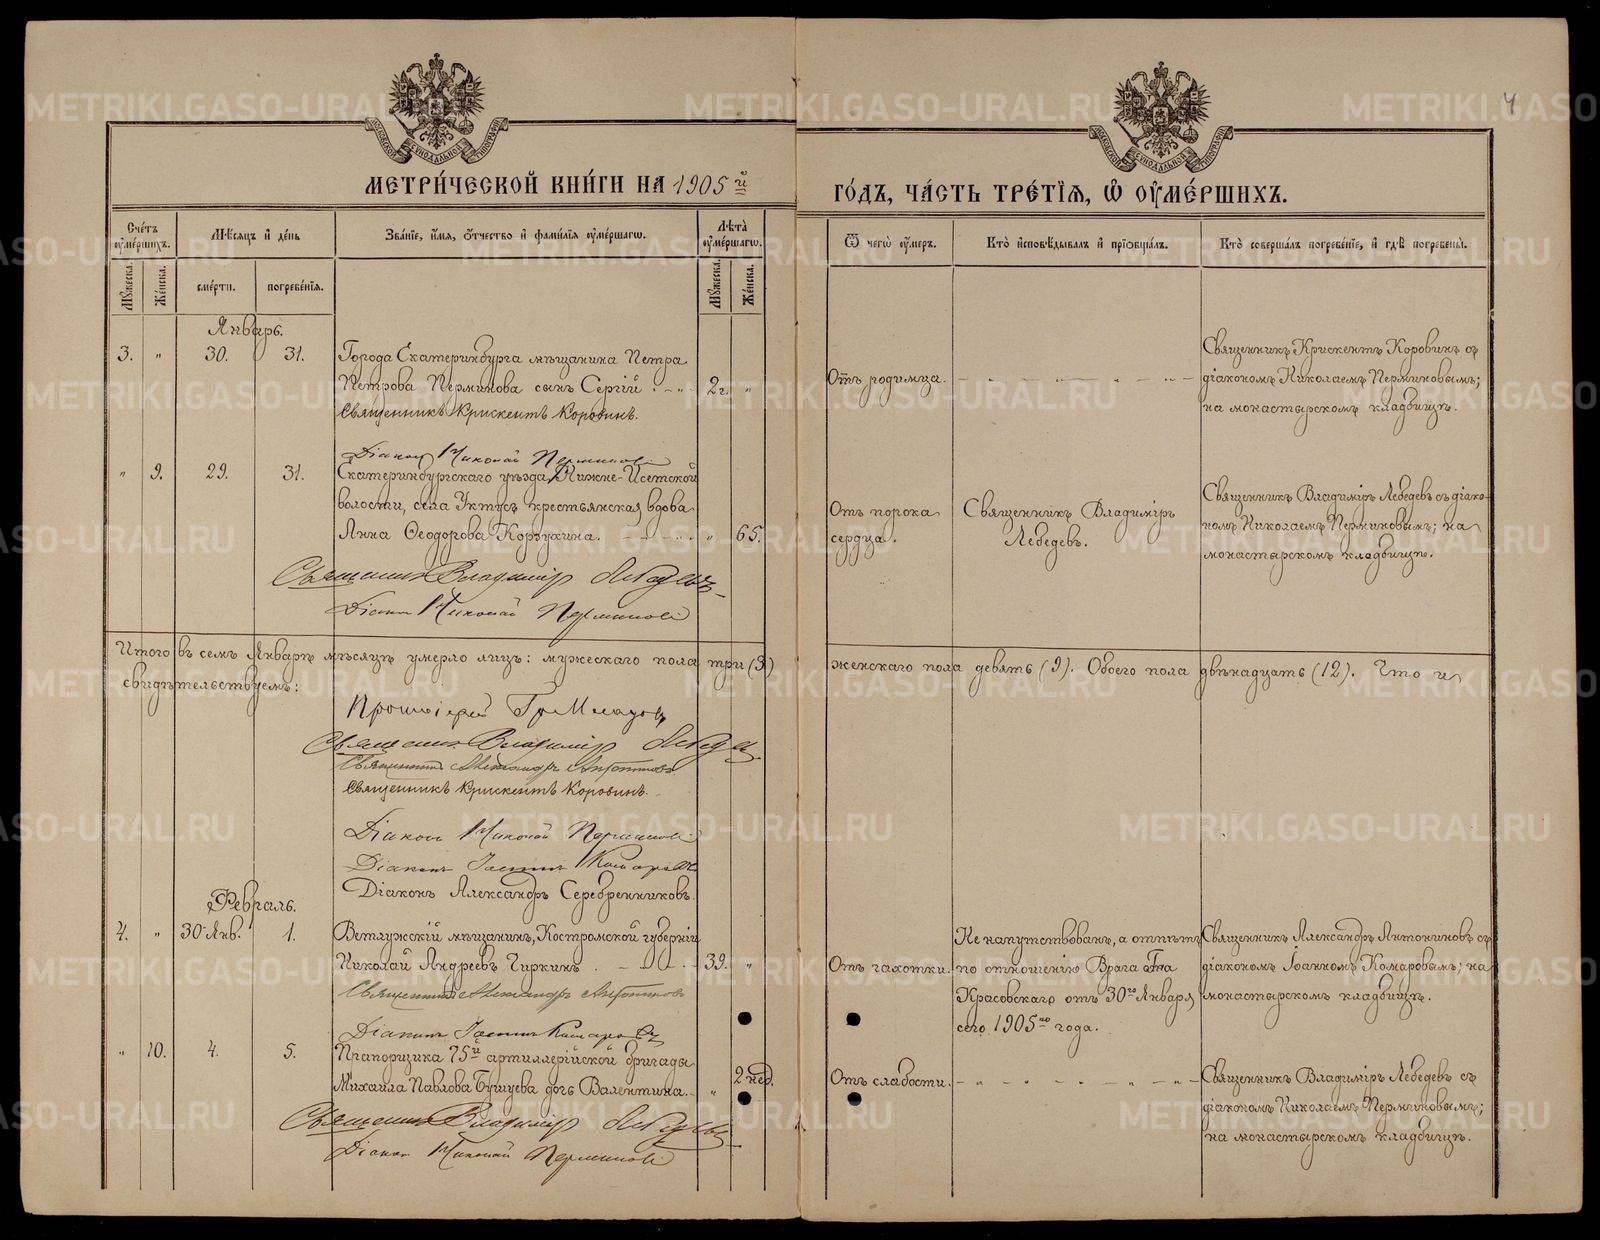 METRIKI.GASO-URAL.RU
4
МОСКОВСКОЙ СѴНОДАЛЬНОЙ ТИПОГРАФІИ
МЕТРИ́ЧЕСКОЙ КНИ́ГИ НА 1905 й
ГО́ДЪ, ЧА́СТЬ ТРЕ́ТІЯ, Ѡ҆ ОУ҆МЕ́РШИХЪ.
Сче́тъ оу҆ме́ршихъ.
Мꙋ́жеска.
Же́нска.
Мѣ́сяцъ и҆ де́нь
сме́рти.
погребе́нїя.
Зва́нїе, и҆́мя, ѻ҆́тчество и҆ фами́лїя оу҆ме́ршагѡ.
Лѣ́та оу҆ме́ршагѡ.
Мꙋ́жеска.
Же́нска.
Ѿ чегѡ̀ оу҆́меръ.
Кто̀ и҆сповѣ́дывалъ и҆ прїѡбща́лъ.
Кто̀ соверша́лъ погребе́нїе, и҆ гдѣ̀ погребены̀.
Январь.
3. " 30. 31.
Города Екатеринбурга мѣщанина Петра
Петрова Перминова сынъ Сергій. - " - 2 г. "
Священникъ Крискентъ Коровинъ.
Діаконъ Николай Перминовъ
Отъ родимца.
Священникъ Крискентъ Коровинъ съ
діакономъ Николаемъ Перминовымъ;
на монастырскомъ кладбищѣ.
" 9. 29. 31.
Екатеринбургскаго уѣзда, Нижне-Исетской
волости, села Уктусъ крестьянская вдова
Анна Ѳеодорова Корзухина. " 65.
Священникъ Владиміръ Лебедевъ
Діаконъ Николай Перминовъ
Отъ порока
сердца.
Священникъ Владиміръ
Лебедевъ.
Священникъ Владиміръ Лебедевъ съ діако-
номъ Николаемъ Перминовымъ; на
монастырскомъ кладбищѣ.
Итого въ семъ Январѣ мѣсяцѣ умерло лицъ: мужескаго пола три (3)
женскаго пола девять (9). Обоего пола двѣнадцать (12). Что и
свидѣтельствуемъ:
Протоіерей
Священникъ Владиміръ Лебедевъ
Священникъ Александръ Антониновъ
Священникъ Крискентъ Коровинъ.
Діаконъ Николай Перминовъ
Діаконъ Іоаннъ Комаровъ
Діаконъ Александръ Серебренниковъ.
Февраль.
4. " 30 Янв. 1.
Ветлужскій мѣщанинъ, Костромской губерніи
Николай Андреевъ Чиркинъ. 39. "
Священникъ Александръ Антониновъ
Діаконъ Іоаннъ Комаровъ
Отъ чахотки.
Не напутствованъ, а отпѣтъ
по отношенію Врача Гна
Красовскаго отъ 30го Января
сего 1905го года.
Священникъ Александръ Антониновъ съ
діакономъ Іоанномъ Комаровымъ; на
монастырскомъ кладбищѣ.
" 10. 4. 5.
Прапорщика 75й артиллерійской бригады
Михаила Павлова Бушуева дочь Валентина. " 2 нед.
Священникъ Владиміръ Лебедевъ
Діаконъ Николай Перминовъ
Отъ слабости.
Священникъ Владиміръ Лебедевъ съ
діакономъ Николаемъ Перминовымъ;
на монастырскомъ кладбищѣ.